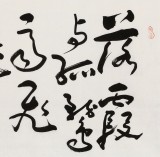 落霞
与孤鹜
齐飞